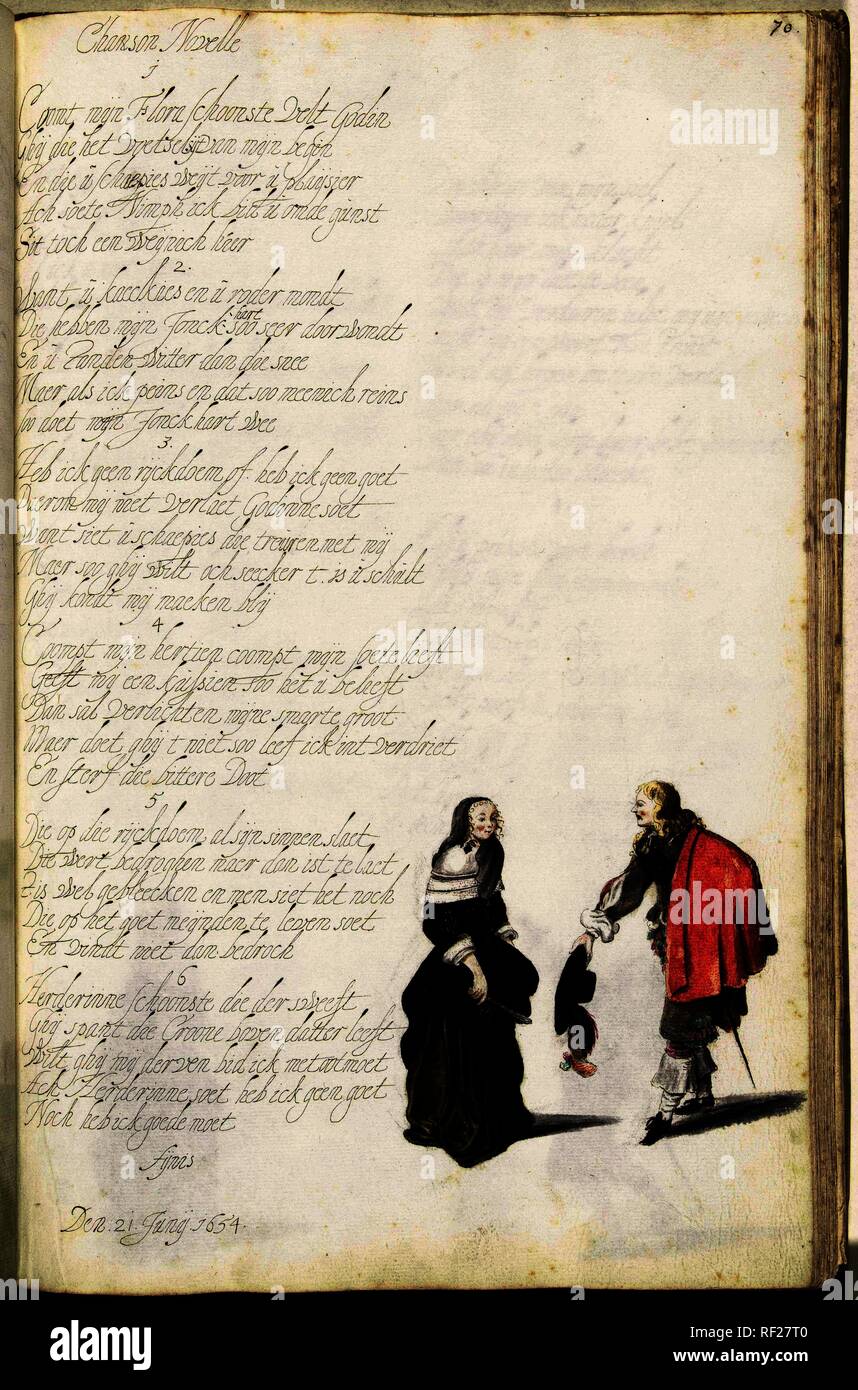 70.
Chanson Novelle
1
Comt mijn Flora schoonste Velt Godin
Ghij die het voetselsijt van mijn begin
En die ū schaepies weijt voor ū plaijsier
Ach soete Nimph ick bitt ū om de gūnst
Sit toch een weijnich hier
2.
Want ū kaeckies en ū roder mondt
Die hebben mijn Jonck hart soo seer door wondt
En ū Tanden witter dan die snee
Maer als ick peins en dat soo meenich reins
Soo doet mijn Jonck hart wee
3.
Heb ick geen rijckdoem of heb ick geen goet
Daerom mij niet verlaet Godinne soet
Want siet ū schaepies die treūren met mij
Maer soo ghij wilt och seecker t. is ū schūlt
Ghij kondt mij maeken blij
4
Coompt mijn hertien coompt mijn soete leeft
Geeft mij een kūssien soo het ū beleeft
Dan sal verlichten mijne smarte groot
Maer doet ghij t niet soo leef ick int verdriet
En sterf die bittere Doot
5
Die op die rijckdoem al sijn sinnen slaet
Die wert bedroghen maer dan ist te laet
Tis wel gebleecken en men siet het noch
Die op het goet meijnden te leven soet
En vindt niet dan bedroch
6
Herderinne schoonste die der sweeft
Ghij spant die Croone boven datter leeft
Wilt ghij mij derven bid ick met ootmoet
Ach Herderinne soet heb ick geen goet
Noch heb ick goede moet
fijnis
Den. 21. Junij 1654.
alamy
alamy
Image ID: RF27T0
www.alamy.com